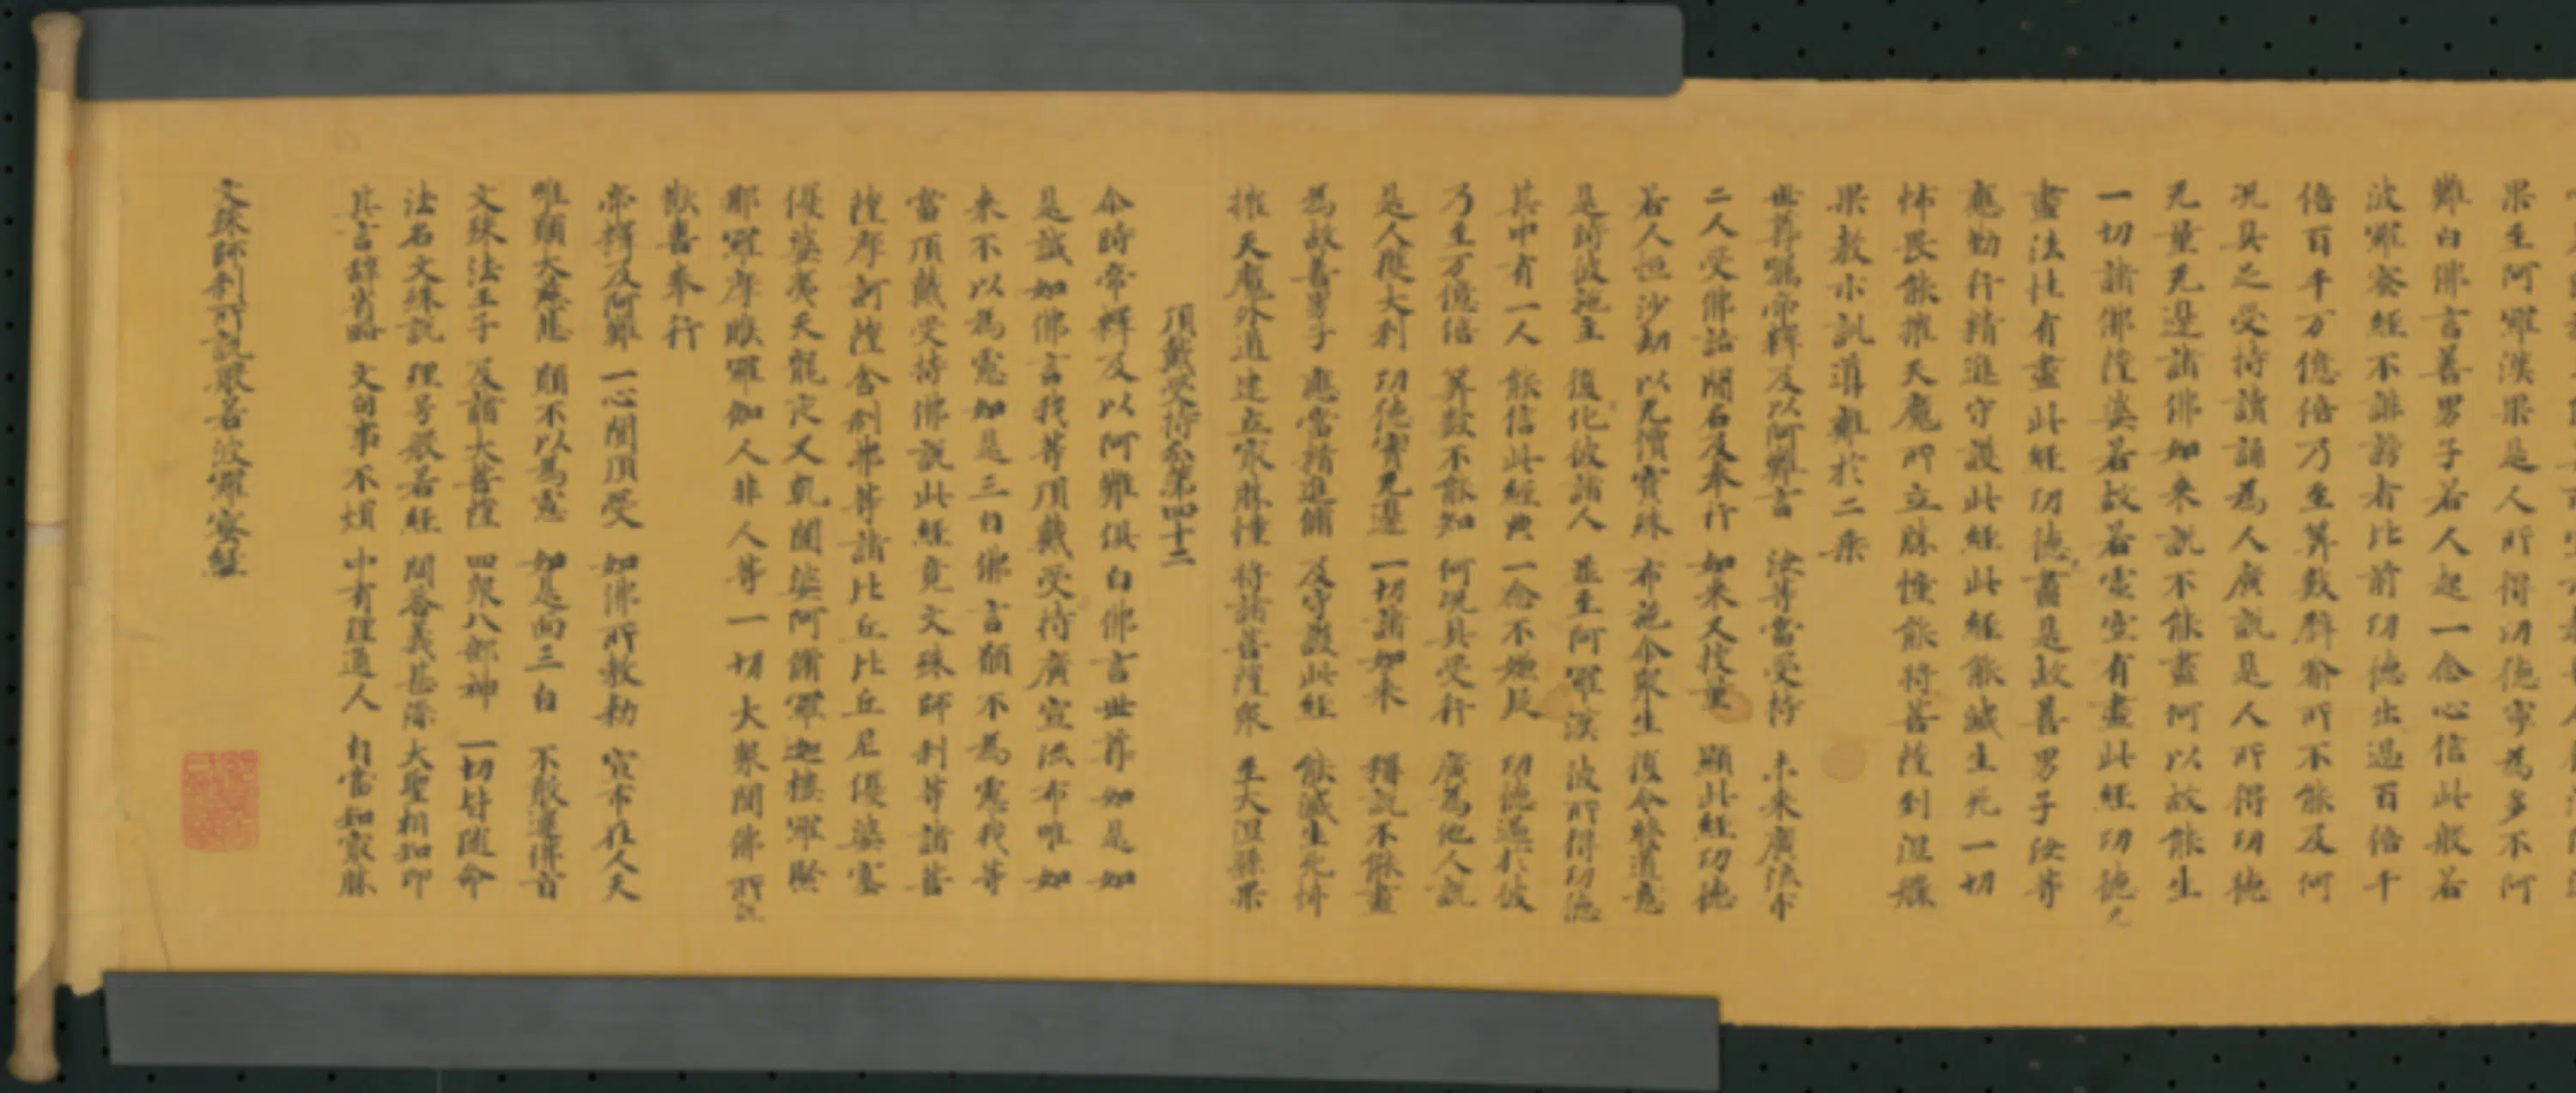 果至阿羅漢果是人所得功德寧為多不阿
難白佛言善男子若人起一念心信此般若
波羅蜜經不誹謗者比前功德出過百倍千
倍百千万億倍乃至筭數譬喻所不能及何
況具足受持讀誦為人廣說是人所得功德
无量无邊諸佛如来說不能盡何以故能生
一切諸佛薩婆若故若虛空有盡此經功德
盡法性有盡此經功德盡是故善男子汝等
應勤行精進守護此經此經能滅生死一切
怖畏能摧天魔所立勝幢能将菩薩到涅槃
果教示訓導離於二乘
世尊囑帝釋及以阿難言 汝等當受持 未来廣流布
二人受佛誥 聞名及奉行 如来又挍量 顯此經功德
若人恒沙劫 以无價寳珠 布施令眾生 復令發道意
是時彼施主 復化彼諸人 並至阿羅漢 彼所得功德
其中有一人 能信此經典 一念不嫌疑 功德過於彼
乃至万億倍 筭數不能知 何況具受行 廣為他人說
是人獲大利 功德寳无邊 一切諸如来 稱說不能盡
為故善男子 應當精進脩 及守護此經 能滅生死怖
摧天魔外道 建立寂勝幢 将諸菩薩眾 至大涅槃果
頂戴受持分第四十二
尒時帝釋及以阿難俱白佛言世尊如是如
是誠如佛言我等頂戴受持廣宣流布唯如
来不以為慮如是三白佛言願不為慮我等
當頂戴受持佛說此經竟文殊師利等諸菩
薩摩訶薩舍利弗等諸比丘比丘尼優婆塞
優婆夷天龍夜叉乹闥婆阿脩羅迦樓羅緊
那羅摩睺羅伽人非人等一切大眾聞佛所說
歡喜奉行
帝釋及阿難 一心聞頂受 如佛所教勑 宣布在人天
唯願大慈悲 願不以為慮 如是面三白 不敢違佛言
文殊法王子 及諸大菩薩 四眾八部神 一切皆随命
法名文殊說 經号般若經 問答義甚深 大聖相知印
其言辞省略 文句事不煩 中有理通人 自當知寂勝
文殊師利所說般若波羅蜜經